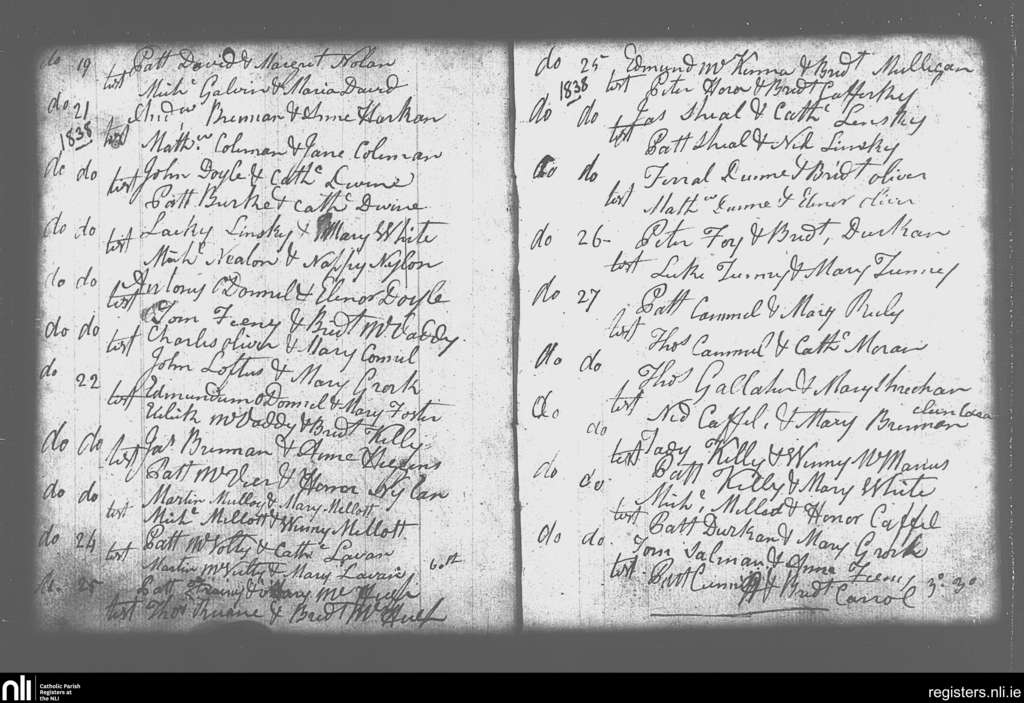 do 19 Patt David & Margret Nolan
test Michl Galvin & Maria David
do 21 Andw Brennan & Anne Harkan
1838 test Mathew Coleman & Jane Coleman
do do John Doyle & Cathe Dwine
test Patt Burke & Cathe Dwine
do do Lacky Linsky & Mary White
test Michl Nealon & Nappy Nylon
do do Antony O Donnel & Elenor Doyle
test Tom Feeny & Bridt McVaddy
do do Charles oliver & Mary Comul
test John Loftus & Mary Grork
do 22 Edmund O Donnel & Mary Foster
test McVaddy & Bridt Killy
do do Jas Brennan & Anne Higgins
test Patt & Honor Nylan
do do Martin Mulloy & Mary Mellott
test Michl Mellott & Winny Mellott
do 24 Patt McNolty & Cathe Lavan
test Martin & Mary Lavan
do 25 Patt & Mary McHugh
test Thos Ruane & Bridt McHugh
do 25 Edmund McKenna & Bridt Mulligan
1838 test Peter Hora & Bridt Cafferky
do do Jas Sheal & Cathe Linsky
test Patt Sheal & Ned Linsky
do do Firral Dunne & Bridt oliver
test Mathw Dunne & Elenor oliver
do 26 Peter Foy & Bridt, Durkan
test Luke Tunny & Mary Tunney
do 27 Patt Cammel & Mary Ruly
test Thos Cammel & Cathe Moran
do do Thos Gallaher & Mary Shrehan
test Ned Caffel, & Mary Brennan
do do Tady Killy & Winny McManus
test Patt Killy & Mary White
do do Michl & Honor Caffel
test Patt Durkan & Mary Grork
do do Tom Salman & Anne Feeny
test Patt & Bridt Carrol 3. 3
nli Catholic Parish
Registers at
the NLI
registers.nli.ie